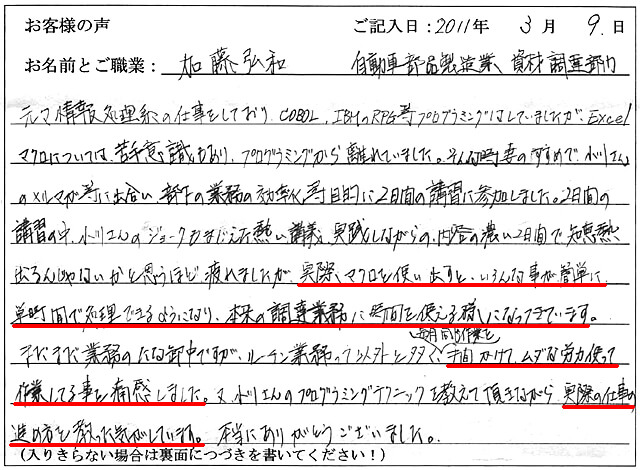 お客様の声 ご記入日：2011年 3月 9日
お名前とご職業： 加藤弘和 自動車部品製造業、資材調達部門
元々情報処理系の仕事をしており、COBOL、IBMのRPG等プログラミングはしていましたが、Excel
マクロについては、苦手意識もあり、プログラミングから離れていました。そんな時、妻のすすめで、小川さん
のメルマガ等に出会い、部下の業務の効率化等目的に2日間の講習に参加しました。2日間の
講習の中、小川さんのジョークもまじえた熱い講義、実践しながらの、内容の濃い2日間で知恵熱
出るんじゃないかと思うほど疲れましたが、実際、マクロを使い出すと、いろんな事が簡単に
単時間で処理できるようになり、本来の調達業務に時間を使える様になってきています。
まだまだ業務の ですが、ルーチン業務って以外と多く 毎月同じ作業を 手間かけて、ムダな労力使って
作業してる事を痛感しました。又、小川さんのプログラミングテクニックを教えて頂きながら、実際の仕事の
進め方を教った気がしています。本当にありがとうございました。
(入りきらない場合は裏面につづきを書いてください！)